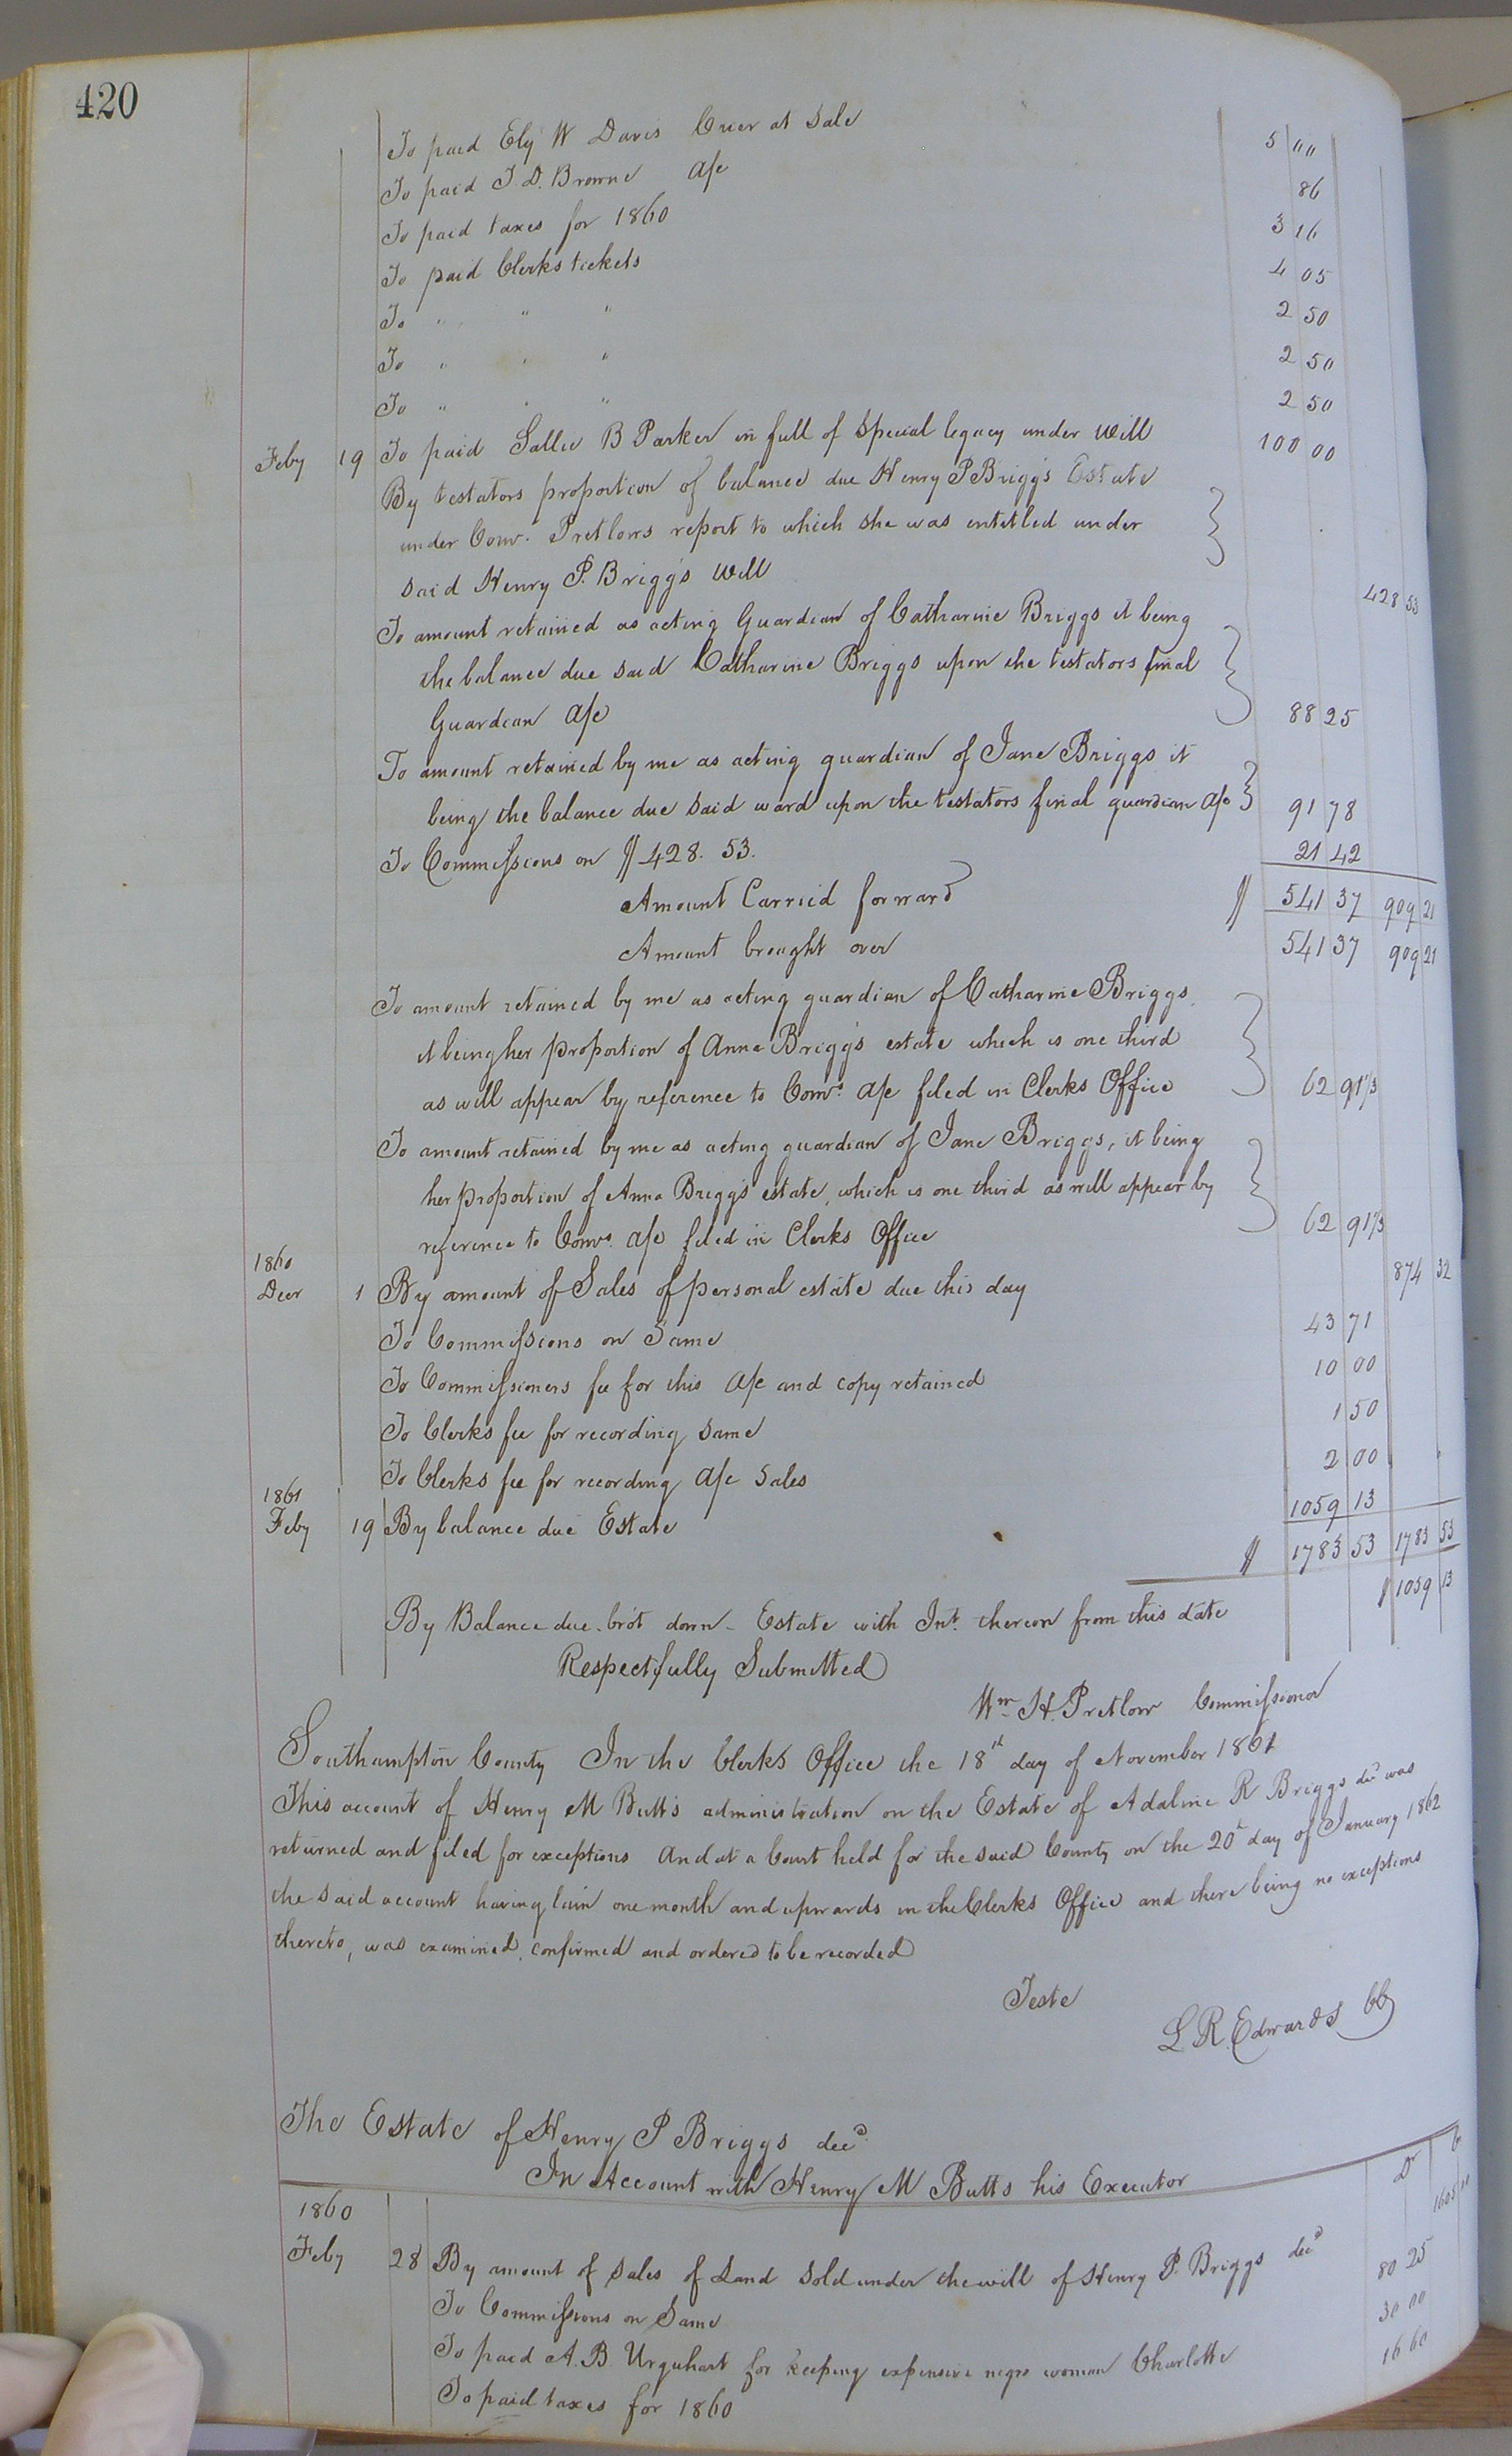 420
To paid Ely W Davis Crier at Sale 5 00
To paid J. D. Browne a/c 86
To paid taxes for 1860 3 16
To paid Clerks tickets 4 05
To " " " 2 50
To " " " 2 50
To " " " 2 50
Feby 19 To paid Sallie B Parker in full of Special legacy under Will 100 00
By testators proportion of balance due Henry P Briggs Estate
under Com. Pretlows report to which she was entitled under
said Henry P. Briggs Will 428 53
To amount retained as acting Guardian of Catharine Briggs it being
the balance due said Catharine Briggs upon the testators final
Guardian a/c 88 25
To amount retained by me as acting guardian of Jane Briggs it
being the balance due said ward upon the testators final guardian a/c 91 78
To Commissions on $428. 53. 21 42
Amount Carried forward $ 541 37 909 21
Amount brought over 541 37 909 21
To amount retained by me as acting guardian of Catharine Briggs
it being her proportion of Anna Briggs estate which is one third
as will appear by reference to Comrs. a/c filed in Clerks Office 62 91 1/3
To amount retained by me as acting guardian of Jane Briggs, it being
her proportion of Anna Briggs estate, which is one third as will appear by
reference to Comrs. a/c filed in Clerks Office 62 91 1/3
1860
Decr 1 By amount of Sales of personal estate due this day 874 32
To Commissions on Same 43 71
To Commissioners fee for this a/c and copy retained 10 00
To Clerks fee for recording same 1 50
To Clerks fee for recording a/c Sales 2 00
1861
Feby 19 By balance due Estate 1059 13
$ 1783 53 1783 53
By Balance due brot down - Estate with Int. thereon from this date $1059 13
Respectfully Submitted
Wm H. Pretlow Commissioner
Southampton County In the Clerks Office the 18th day of November 1861
This account of Henry M Butts administration on the Estate of Adaline R Briggs decd was
returned and filed for exceptions And at a Court held for the said County on the 20th day of January 1862
the said account having lain one month and upwards in the Clerks Office and there being no exceptions
thereto, was examined, confirmed and ordered to be recorded
Teste
L. R. Edwards CC
The Estate of Henry P Briggs decd
In Account with Henry M Butts his Executor Dr Cr
1860
Feby 28 By amount of Sales of Land Sold under the will of Henry P. Briggs decd
To Commissions on Same 80 25
To paid A. B. Urquhart for keeping expensive negro woman Charlotte 30 00
To paid taxes for 1860 16 60